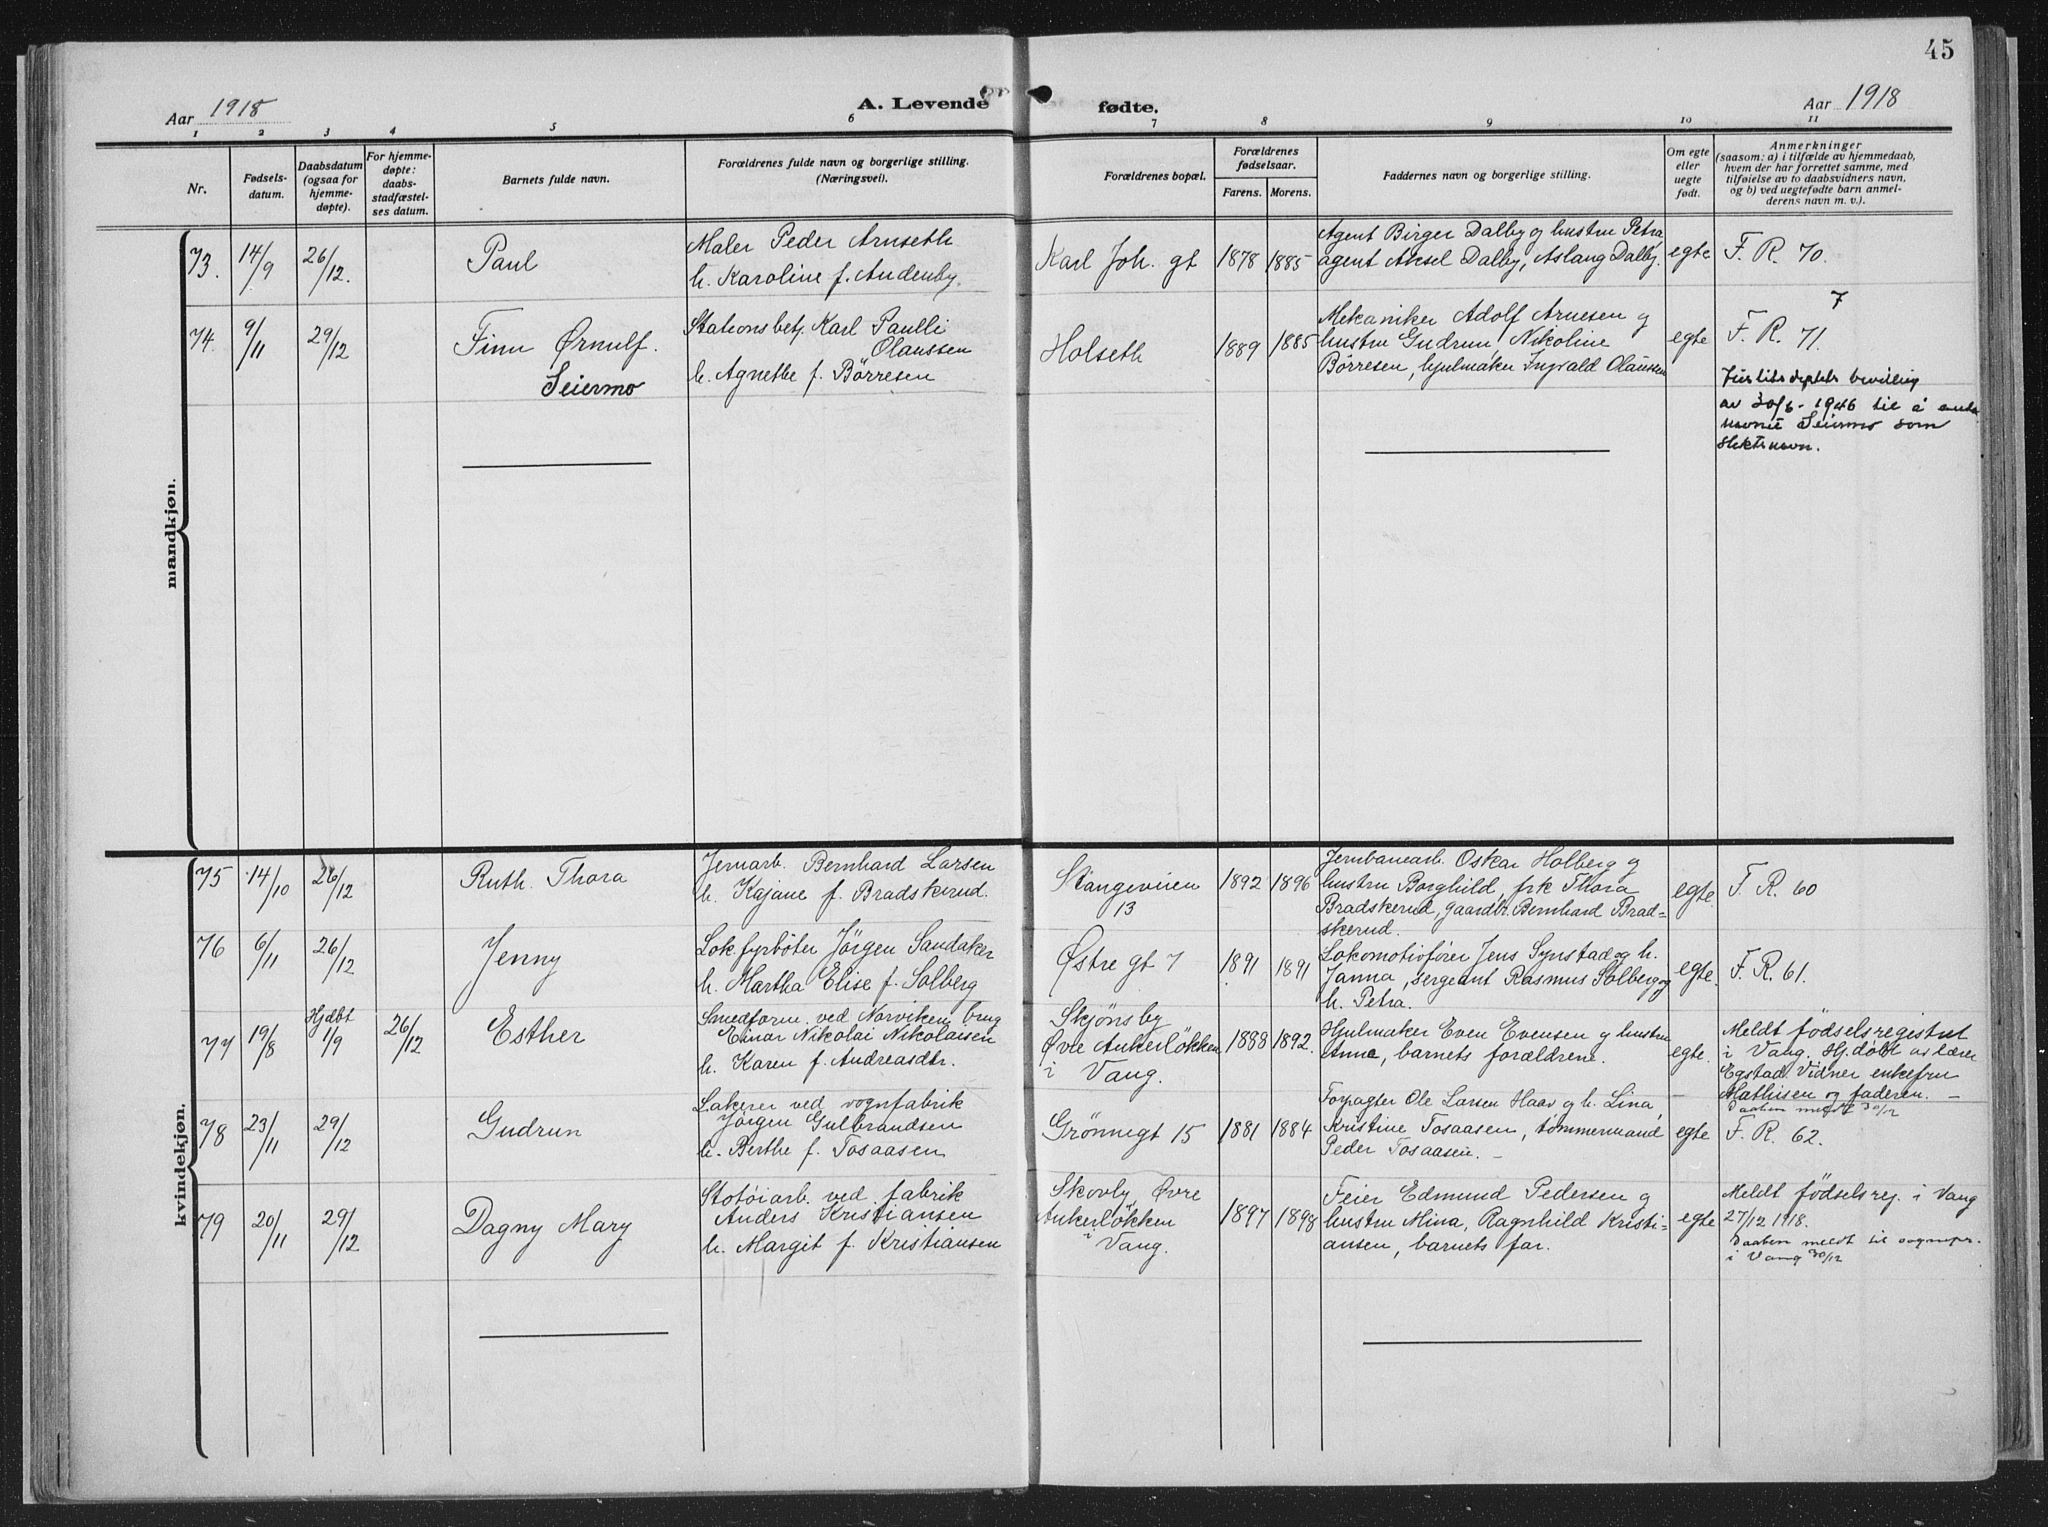 45
Aar 1918
A. Levende fødte.
Aar 1918
1 2 3 4 5 6 7 8 9 10 11
Nr.
Fødsels-
datum.
Daabsdatum
(ogsaa for
hjemme-
døpte).
For hjemme-
døpte:
daabs-
stadfæstel-
ses datum.
Barnets fulde navn.
Forældrenes fulde navn og borgerlige stilling.
(Næringsvei).
Forældrenes bopæl.
Forældrenes
fødselsaar.
Farens. Morens.
Faddernes navn og borgerlige stilling.
Om egte
eller
uegte
født.
Anmerkninger
(saasom: a) i tilfælde av hjemmedaab,
hvem der har forrettet samme, med
tilføielse av to daabsvidners navn,
og b) ved uegtefødte barn anmel-
derens navn m. v.).
mandkjøn.
73. 14/9 26/12.
Paul
Maler Peder Arnseth
h. Karoline f. Andenby.
Karl Joh. gt
1878 1885
Agent Birger Dalby og hustru Petra,
agent Aksel Dalby, Aslaug Dalby.
egte
F. R. 70.
74. 9/11 29/12
Finn Ørnulf.
Seiermo
Stationsbetj. Karl Paulli
Olaussen
h. Agnethe f. Börresen
Holseth
1889 1885
Mekaniker Adolf Arnesen g
hustru Gudrun, Nikoline
Børresen, hjulmaker Ingvald Olaussen
egte
7
F. R. 71.
Justitsdeptets bevilling
av 30/6 - 1946 til å anta
navnet Seiermo som
slektsnavn.
kvindekjøn.
75 14/10 26/12
Ruth. Thora
Jernarb. Bernhard Larsen
h. Kajane f. Bradskerud.
Stangeveien
13
1892 1896
Jernbanearb. Oskar Holberg g
hustru Borghild, frk Thora
Bradskerud, gaardbr. Bernhard Brad-
skerud.
egte.
F. R. 60
76 6/11 26/12
Jenny
Lok.fyrbøter Jörgen Sandaker
h. Martha Elise f. Solberg
Østre gt 7
1891 1891
Lokomotivfører Jens Synstad og h.
Janna, sergeant Rasmus Solberg og
h. Petra.
egte.
F. R. 61.
77 19/8 Hjdbt 1/9 26/12
Esther
Smedform. ved Norviken brug
Einar Nikolai Nikolaisen
h. Karen f. Andreasdtr.
Skjönsby
Øvre Ankerløkken
i Vang.
1888 1892.
Hjulmaker Even Evensen g hustru
Anna, barnets forældrene.
egte.
Meldt fødselsregistret
i Vang. Hj.døbt av lærer
Egstad. Vidner enkefru
Mathisen og faderen. —
Daaben meldt 30/12
78 23/11 29/12
Gudrun
Lakerer ved vognfabrik
Jörgen Gulbrandsen
h. Berthe f. Tosaasen
Grönnegt 15
1881 1884
Forpagter Ole Larsen Haav og h. Lina,
Kristine Tosaasen, tömmermand
Peder Tosaasen. —
egte
F. R. 62.
79 20/11 29/12
Dagny Mary
Stotöiarb. ved fabrik
Anders Kristiansen
h. Margit f. Kristiansen
Skovby, Øvre
Ankerløkken
i Vang.
1897 1898
Feier Edmund Pedersen g
hustru Mina, Ragnhild Kristi-
ansen, barnets far.
egte
Meldt fødselsrej. i Vang
27/12 1918.
Daaben meldt til sognepr.
i Vang 30/12